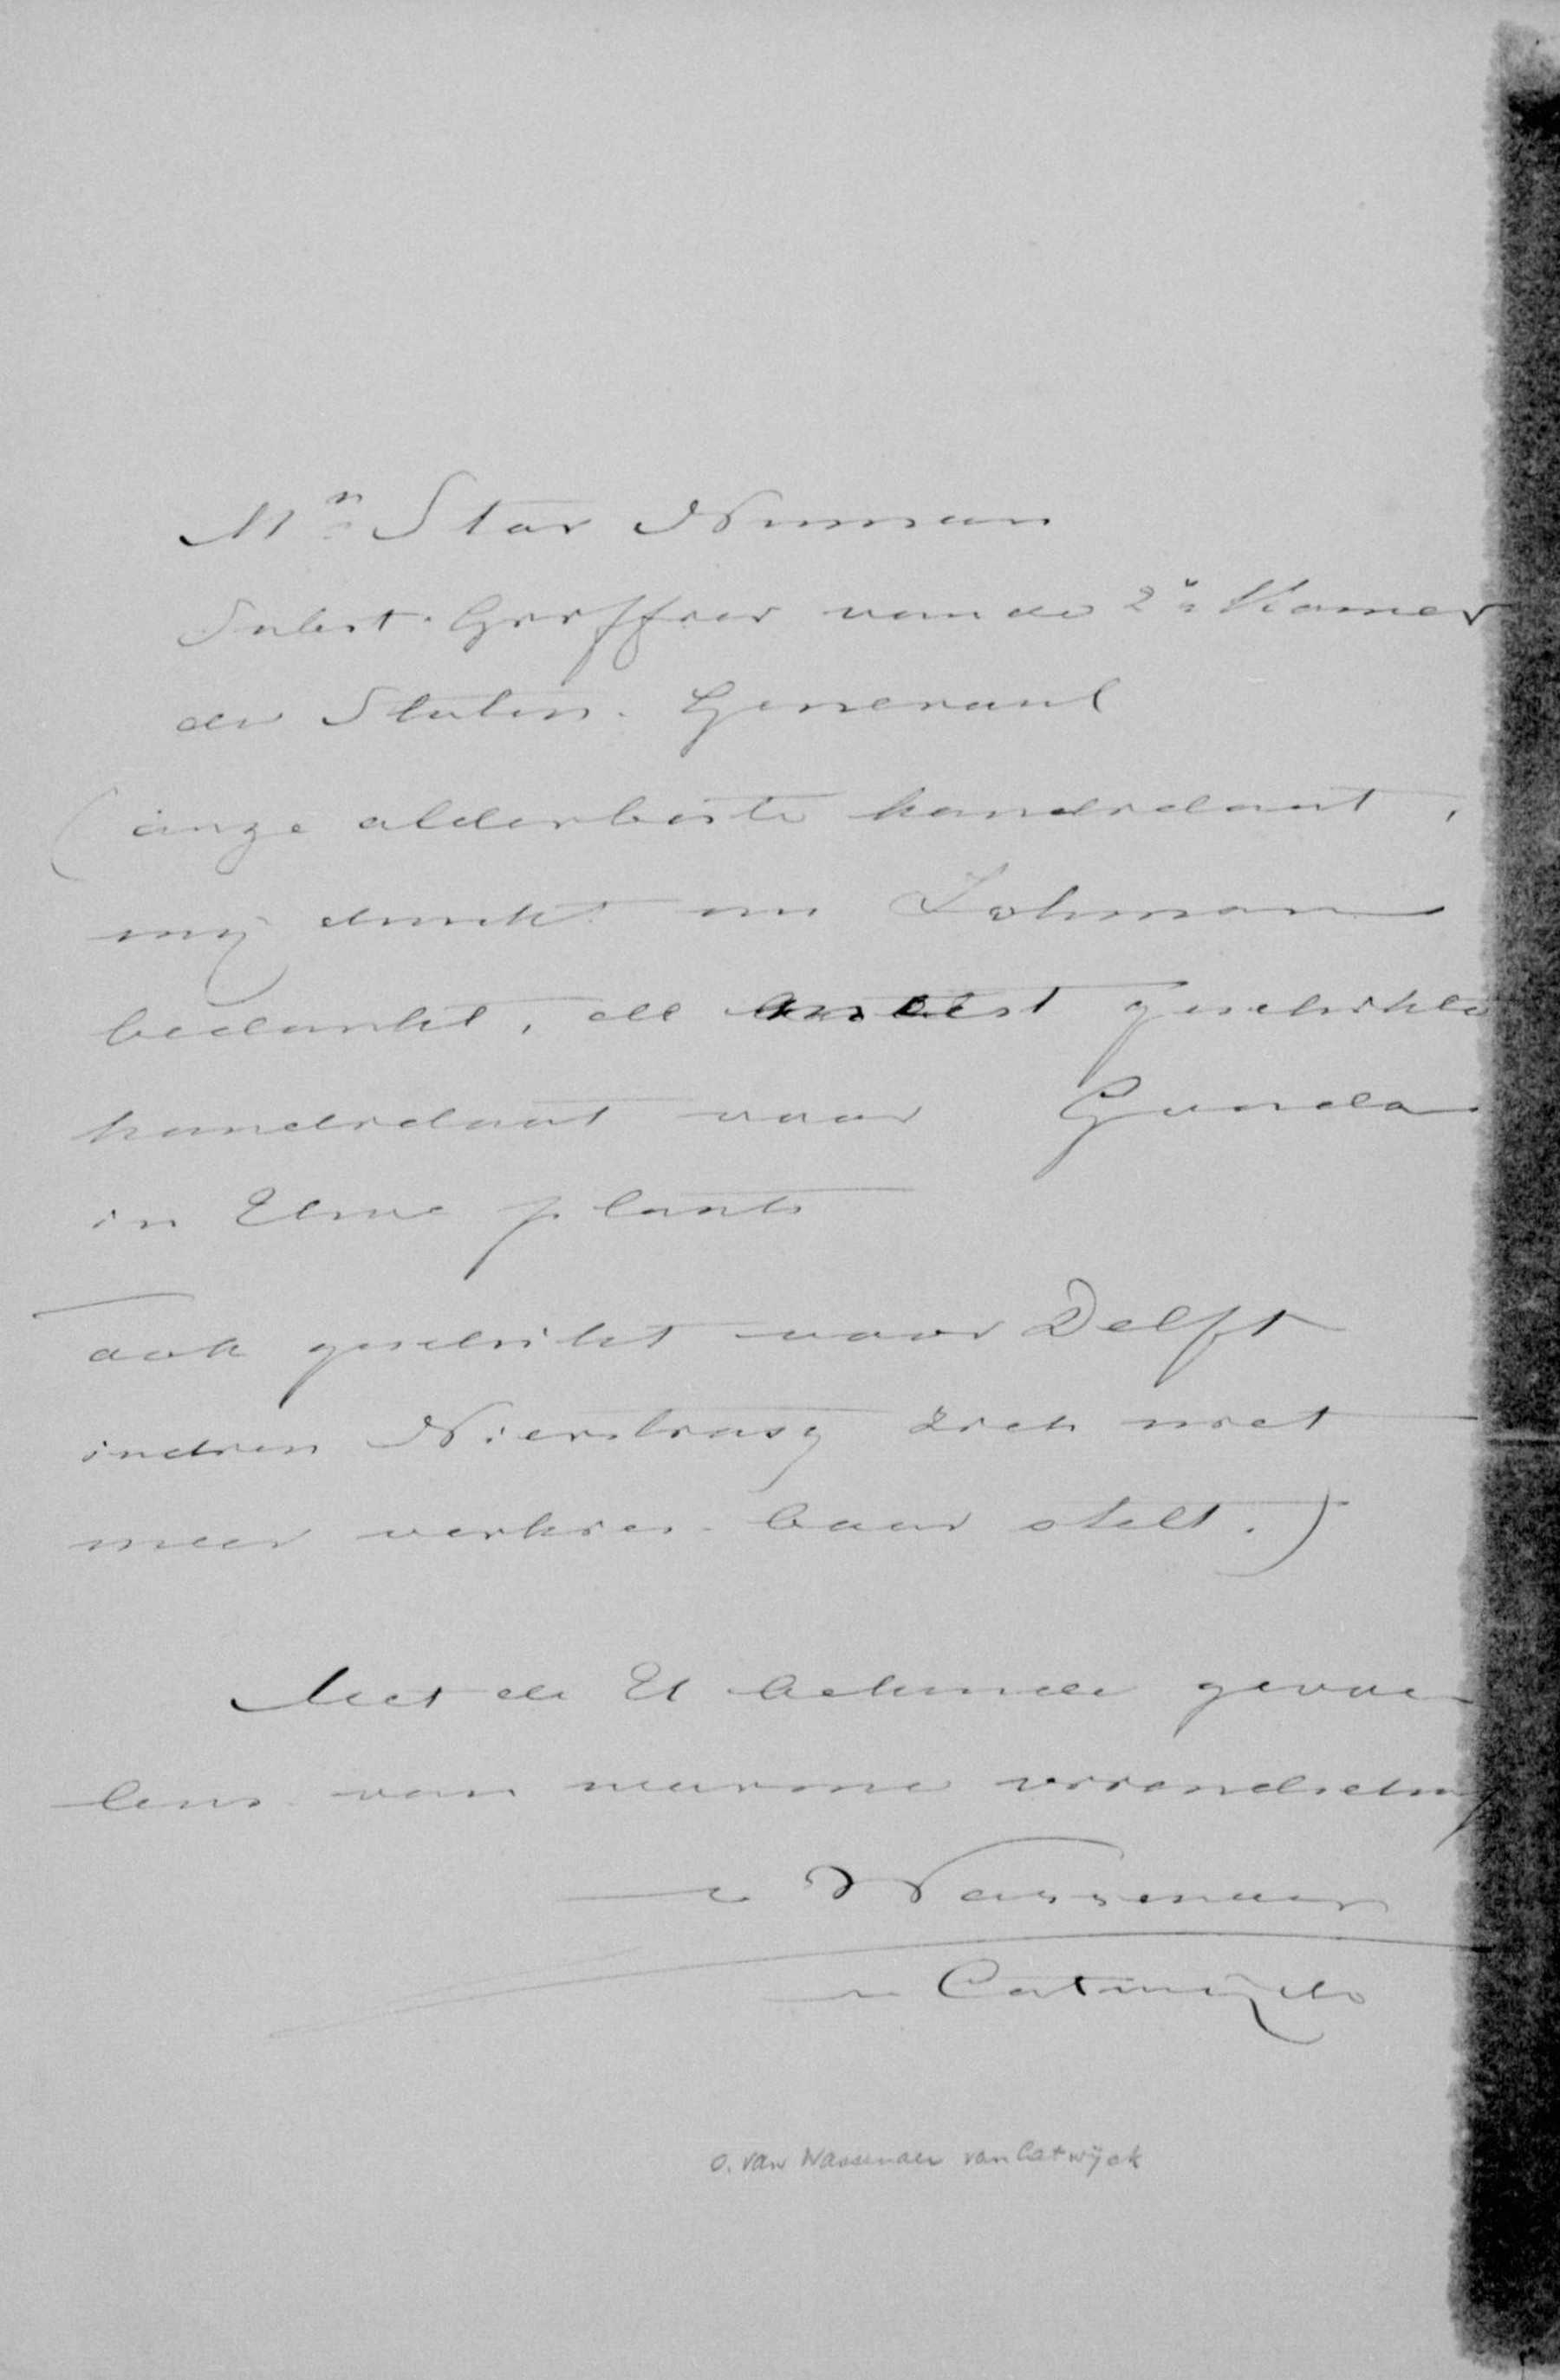 Mr Star Numan
Subst. Griffier van de 2e Kamer
der Staten. Generaal
(onze alderbeste kandidaat,
mij dunkt nu Lohman
bedankt, de meest geschikte
kandidaat voor Gouda
in Elins plaats
ook geschikt voor Delft
indien Nierstrasz zich niet
meer verkies-baar stelt.)
Met de U bekende gevoe
lens van warme vriendschap
v Wassenaer
v Catwijck
O. van Wassenaer van Catwijck